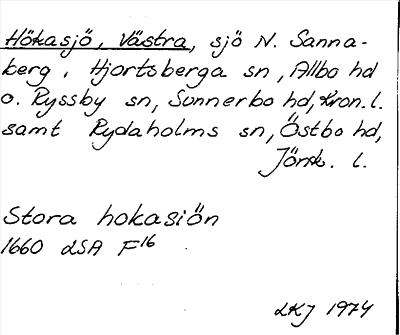 Hökasjö, Västra, sjö N. Sanna-
berg, Hjortsberga sn, Allbo hd
o. Ryssby sn, Sunnerbo hd, Kron. l.
samt Rydaholms sn, Östbo hd,
Jönk. l.
Stora hokasiön
1660 LSA F16
LKJ 1974